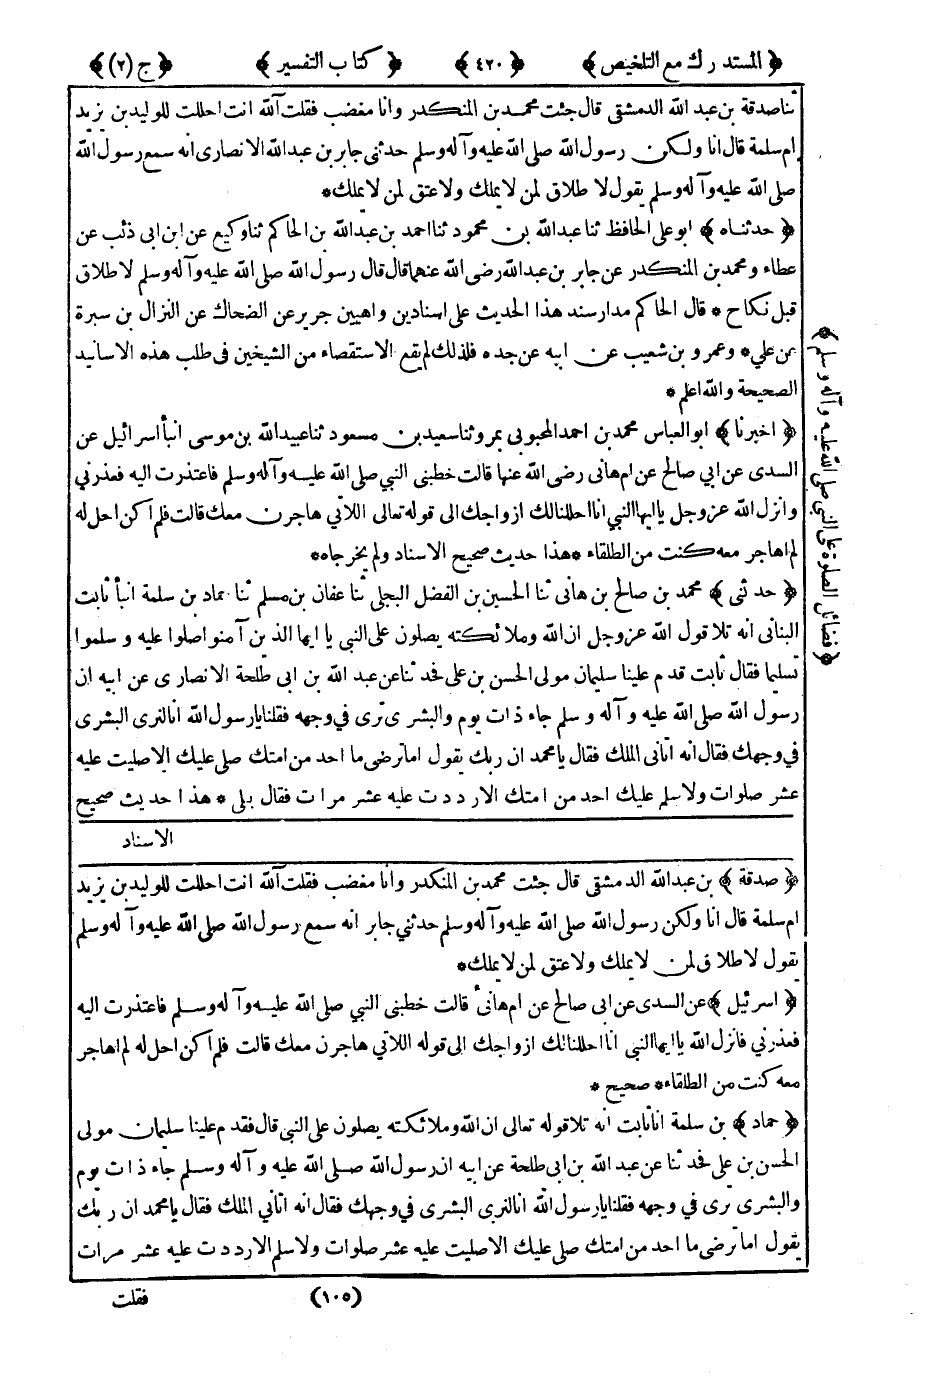 ﴿ المستدرك مع التلخيص ﴾ ﴿ ٤٢٠ ﴾ ﴿ كتاب التفسير ﴾ ﴿ ج (٢) ﴾
ثنا صدقة بن عبد الله الدمشقى قال جئت محمد بن المنكدر وانا مغضب فقلت آلله انت احللت للوليد بن يزيد
ام سلمة قال انا ولكن رسول الله صلى الله عليه وآله وسلم حدثني جابر بن عبد الله الانصارى انه سمع رسول الله
صلى الله عليه وآله وسلم يقول لا طلاق لمن لا يملك ولا عتق لمن لا يملك*
﴿ حدثناه ﴾ ابو على الحافظ ثنا عبد الله بن محمود ثنا احمد بن عبد الله بن الحاكم ثنا وكيع عن ابن ابى ذئب عن
عطاء ومحمد بن المنكدر عن جابر بن عبد الله رضى الله عنهما قال قال رسول الله صلى الله عليه وآله وسلم لا طلاق
قبل نكاح * قال الحاكم مدار سند هذا الحديث على اسنادين واهيين جرير عن الضحاك عن النزال بن سبرة
عن علي* وعمرو بن شعيب عن ابيه عن جده فلذلك لم يقع الاستقصاء من الشيخين فى طلب هذه الاسانيد
الصحيحة والله اعلم *
﴿ اخبرنا ﴾ ابو العباس محمد بن احمد المحبوبى بمرو ثنا سعيد بن مسعود ثنا عبيد الله بن موسى انبأ اسرائيل عن
السدى عن ابي صالح عن ام هانى رضى الله عنها قالت خطبنى النبي صلى الله عليه وآله وسلم فاعتذرت اليه فعذرني
وانزل الله عز وجل يا ايها النبي انا احللنا لك ازواجك الى قوله تعالى اللاتي هاجرن معك قالت فلم اكن احل له
لم اهاجر معه كنت من الطلقاء *هذا حديث صحيح الاسناد ولم يخرجاه*
﴿ حدثنى ﴾ محمد بن صالح بن هانى ثنا الحسين بن الفضل البجلى ثنا عفان بن مسلم ثنا حماد بن سلمة انبأ ثابت
البنانى انه تلا قول الله عز وجل ان الله وملائكته يصلون على النبي يا ايها الذين آمنوا صلوا عليه و سلموا
تسليما فقال ثابت قدم علينا سليمان مولى الحسن بن على فحدثنا عن عبد الله بن ابى طلحة الانصارى عن ابيه ان
رسول الله صلى الله عليه وآله وسلم جاء ذات يوم والبشرى ترى في وجهه فقلنا يا رسول الله انا لنرى البشرى
في وجهك فقال انه اتانى الملك فقال يا محمد ان ربك يقول اما ترضى ما احد من امتك صلى عليك الا صليت عليه
عشر صلوات ولا سلم عليك احد من امتك الا رددت عليه عشر مرات فقال بلى * هذا حديث صحيح
الاسناد
﴿ فضائل الصلوة على النبي صلى الله عليه وآله وسلم ﴾
﴿ صدقة ﴾ بن عبد الله الدمشقى قال جئت محمد بن المنكدر وانا مغضب فقلت آلله انت احللت للوليد بن يزيد
ام سلمة قال انا ولكن رسول الله صلى الله عليه وآله وسلم حدثني جابر انه سمع رسول الله صلى الله عليه وآله وسلم
يقول لا طلاق لمن لا يملك ولا عتق لمن لا يملك*
﴿ اسرئيل ﴾ عن السدى عن ابى صالح عن ام هانئ قالت خطبنى النبي صلى الله عليه وآله وسلم فاعتذرت اليه
فعذرني فانزل الله يا ايها النبى انا احللنا لك ازواجك الى قوله اللاتي هاجرن معك قالت فلم اكن احل له لم اهاجر
معه كنت من الطلقاء* صحيح *
﴿ حماد ﴾ بن سلمة انا ثابت انه تلا قوله تعالى ان الله وملائكته يصلون على النبي قال فقدم علينا سليمان مولى
الحسن بن على فحدثنا عن عبد الله بن ابى طلحة عن ابيه ان رسول الله صلى الله عليه وآله وسلم جاء ذات يوم
والبشرى ترى في وجهه فقلنا يا رسول الله انا لنرى البشرى في وجهك فقال انه اتاني الملك فقال يا محمد ان ربك
يقول اما ترضى ما احد من امتك صلى عليك الا صليت عليه عشر صلوات ولا سلم الا رددت عليه عشر مرات
(١٠٥) فقلت